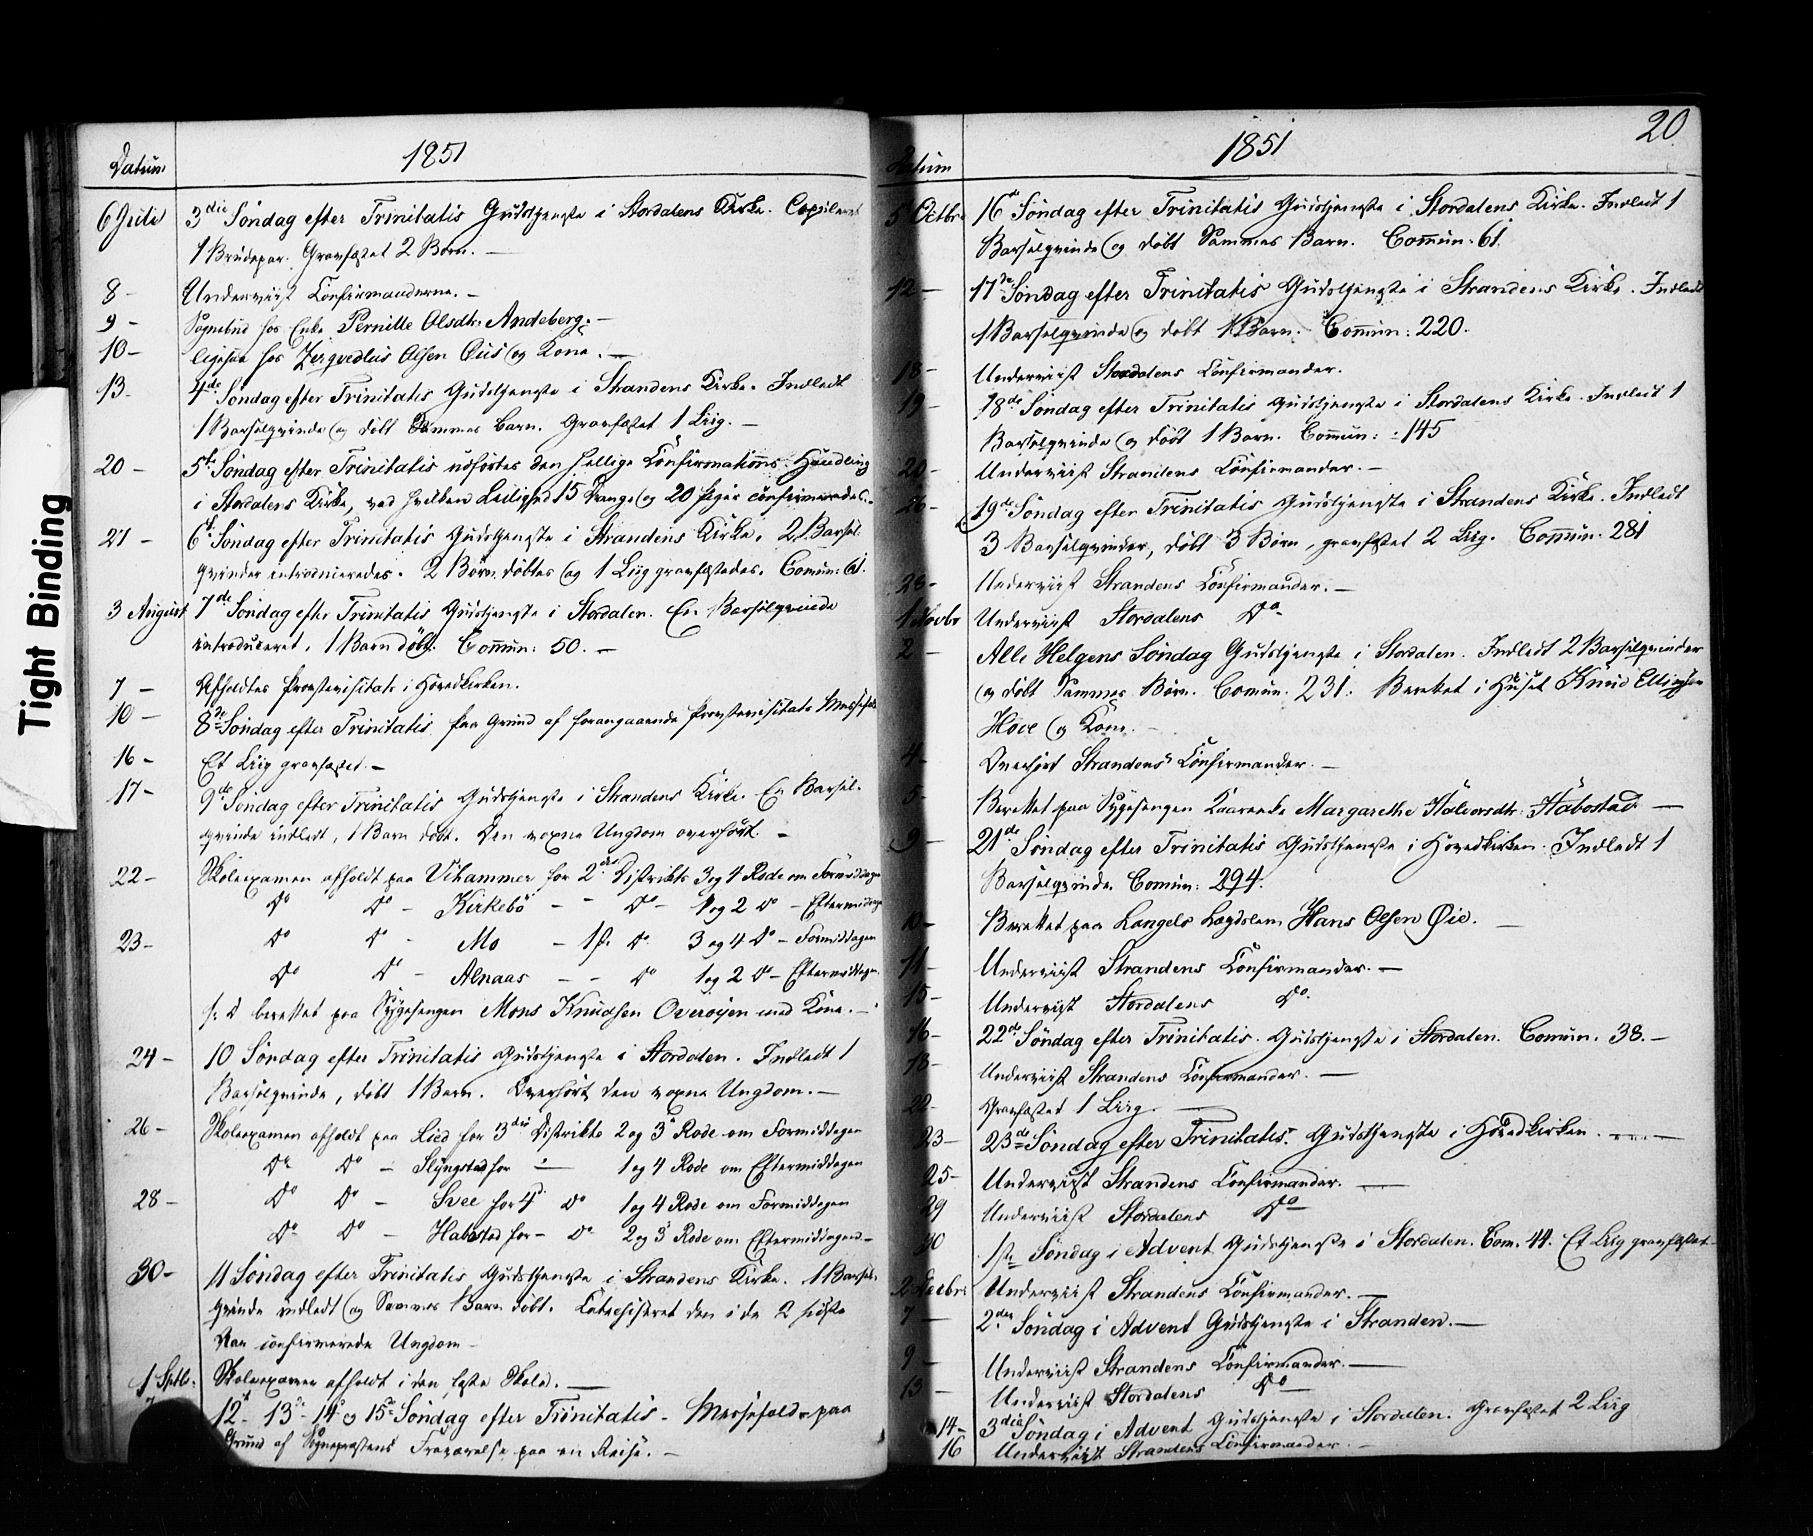 Tight Binding
Datum 1851
6 Juli 3die Søndag efter Trinitatis Gudstjeneste i Stordalens Kirke. Copuleret
1 Brudepar. Gravfæstet 2 Børn. —
8 - Underviist Confirmanderne. —
9 - Sognebud hos Enke Pernille Olsdtr. Andeberg. —
10 - Ligesaa hos Olsen Aus og Kone. —
13 - 4de Søndag efter Trinitatis Gudstjeneste i Strandens Kirke. Indledt
1 Barselqvinde og døbt Sammes Barn. Gravfæstet 1 Liig. —
20 - 5te Søndag efter Trinitatis udførtes den hellige Confirmations-Handling
i Stordalens Kirke, ved hvilken Leilighed 15 Drenge og 20 Piger confirmeredes. -
27 - 6te Søndag efter Trinitatis Gudstjeneste i Strandens Kirke. 2 Barsel-
qvinder introduceredes. 2 Børn døbtes og 1 Liig gravfæstedes. Comun: 61.
3 August 7de Søndag efter Trinitatis Gudstjeneste i Stordalen. En Barselqvinde
introduceret, 1 Barn døbt. Commun: 50. —
7 - Afholdtes Provstevisitats i Hovedkirken.
10 - 8de Søndag efter Trinitatis paa Grund af forangaaende Provstevisitats Messefald
16 - Et Liig gravfæstet. —
17 - 9de Søndag efter Trinitatis Gudstjeneste i Strandens Kirke. En Barsel-
qvinde indledt, 1 Barn døbt. Den voxne Ungdom overhørt. —
22 - Skoleexamen afholdt paa Vihammer for 2det Distrikts 3 og 4 Rode om Formiddagen
Do Do - Kirkebø - - Do - 1 og 2 Do - Eftermiddagen
23 - Do Do - Mo - 1ste Do 3 og 4 Do - Formiddagen
Do Do - Alnaas - - Do 1 og 2 Do - Eftermiddagen
s. D berettet paa Sygesengen Mons Knudsen Overøien med Kone. —
24 - 10 Søndag efter Trinitatis Gudstjeneste i Stordalen. Indledt 1
Barselqvinde, døbt 1 Barn. Overhørt den voxne Ungdom. —
26 - Skoleexamen afholdt paa Lied for 3die Distrikts 2 og 3 Rode om Formiddagen
Do Do - Slyngstad for — 1 og 4 Rode om Eftermiddagen
28 - Do Do - Svee for 4de Do 1 og 4 Rode om Formiddagen
Do Do - Habostad for - Do 2 og 3 Rode om Eftermiddagen -
30 - 11 Søndag efter Trinitatis Gudstjeneste i Strandens Kirke. 1 Barsel-
qvinde indledt og Sammes Barn døbt. Catechiseret den i de 2 sidste
Aar confirmerede Ungdom —
1 Sptb. Skoleexamen afholdt i den faste Skole. —
12te - 13de - 14de og 15de Søndag efter Trinitatis - Messefald paa
Grund af Sognepræstens Fraværelse paa en Reise. —
20
Datum 1851
5 Octbr. 16de Søndag efter Trinitatis Gudstjeneste i Stordalens Kirke. Indledt 1
Barselqvinde og døbt Sammes Barn. Commun. 61.
12 - 17de Søndag efter Trinitatis Gudstjeneste i Strandens Kirke. Indledt
1 Barselqvinde og døbt 1 Barn. Commun: 220.
18 - Underviist Stordalens Confirmander.
19 - 18de Søndag efter Trinitatis Gudstjeneste i Stordalens Kirke. Indledt 1
Barselqvinde og døbt 1 Barn. Commun: - 145
20 - Underviist Strandens Confirmander. —
26 - 19de Søndag efter Trinitatis Gudstjeneste i Strandens Kirke. Indledt
3 Barselqvinder, døbt 3 Børn, gravfæstet 2 Liig. Commun. 281
28 - Underviist Strandens Confirmander. —
1 Novbr Underviist Stordalens Do
2 - Alle Helgens Søndag Gudstjeneste i Stordalen. Indledt 2 Barselqvinder
og døbt Sammes Børn. Comun. 231. Berettet i Huset Knud Ellingsen
Hove og Kone. —
4 - Overhørt Strandens Confirmander. —
5 - Berettet paa Sygesengen Kaarenke Margarethe Halvorsdtr. Habostad —
9 - 21de Søndag efter Trinitatis Gudstjeneste i Hovedkirken. Indledt 1
Barselqvinde. Comun: 294.
10 - Berettet paa Langels Lægdslem Hans Olsen Øie. —
11 - Underviist Strandens Confirmander. —
15 - Underviist Stordalens Do.
16 - 22de Søndag efter Trinitatis. Gudstjeneste i Stordalen. Comun. 38. —
18 - Underviist Strandens Confirmander. —
22 - Gravfæstet 1 Liig. —
23 - 23de Søndag efter Trinitatis. Gudstjeneste i Hovedkirken. ....—
25 - Underviist Strandens Confirmander. —
29 Underviist Stordalens Do —
30 1ste Søndag i Advent Gudstjeneste i Stordalen. Com. 44. Et Liig gravfæstet —
2 Decbr. Underviist Strandens Confirmander. —
7 - 2den Søndag i Advent Gudstjeneste i Stranden. —
9 - Underviist Strandens Confirmander. —
13 - Underviist Stordalens Do —
14 - 3die Søndag i Advent Gudstjeneste i Stordalen. Gravfæstet 2 Liig
16 Underviist Strandens Confirmander. —